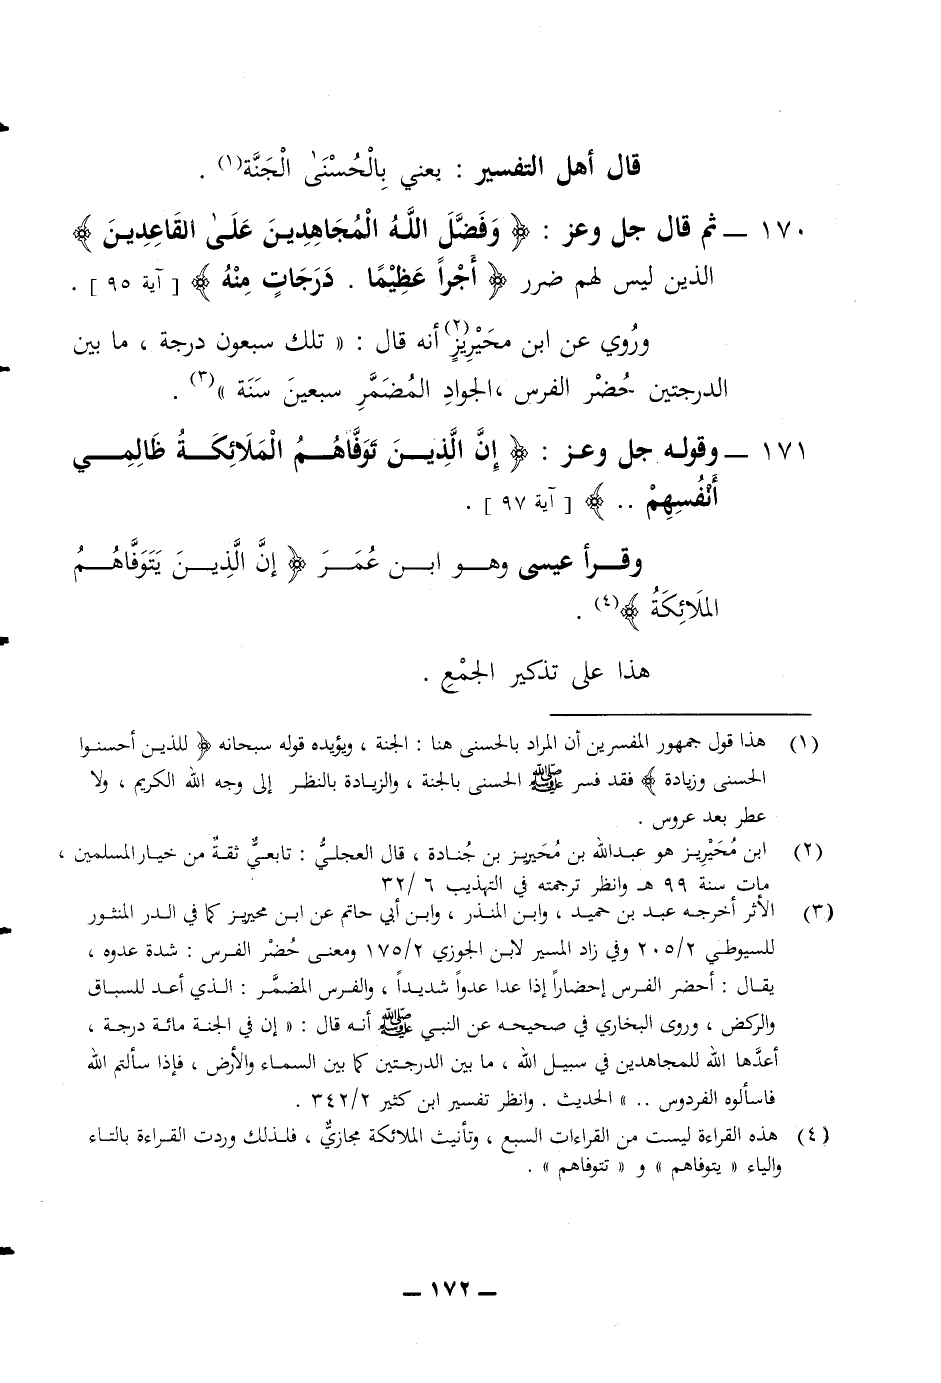 قال أهل التفسير : يعني بِالْحُسْنَىٰ الْجَنَّة(١) .
١٧٠ ــ ثم قال جل وعز : ﴿ وَفَضَّلَ اللَّهُ الْمُجَاهِدِينَ عَلَىٰ القَاعِدِينَ ﴾
الذين ليس لهم ضرر ﴿ أَجْراً عَظِيْمًا . دَرَجَاتٍ مِنْهُ ﴾ [ آية ٩٥ ] .
ورُوي عن ابن محَيْرِيزٍ(٢) أنه قال : « تلك سبعون درجة ، ما بين
الدرجتين حُضْر الفرس ،الجوادِ المُضَمَّرِ سبعينَ سَنَة »(٣) .
١٧١ ــ وقوله جل وعز : ﴿ إِنَّ الَّذِينَ تَوَفَّاهُمُ الْمَلَائِكَةُ ظَالِمِي
أَنْفُسِهِمْ .. ﴾ [ آية ٩٧ ] .
وقرأ عيسى وهو ابن عُمَرَ ﴿ إِنَّ الَّذِينَ يَتَوَفَّاهُمُ
المَلَائِكَةُ ﴾(٤) .
هذا على تذكير الجمْعِ .
(١) هذا قول جمهور المفسرين أن المراد بالحسنى هنا : الجنة ، ويؤيده قوله سبحانه ﴿ للذين أحسنوا
الحسنى وزيادة ﴾ فقد فسر ﷺ الحسنى بالجنة ، والزيادة بالنظر إلى وجه الله الكريم ، ولا
عطر بعد عروس .
(٢) ابن مُحَيْرِيز هو عبدالله بن مُحَيريز بن جُنادة ، قال العجليُّ : تابعيٌّ ثقةٌ من خيار المسلمين ،
مات سنة ٩٩ هـ وانظر ترجمته في التهذيب ٦ /٣٢
(٣) الأثر أخرجه عبد بن حميد ، وابن المنذر ، وابن أبي حاتم عن ابن محيريز كما في الدر المنثور
للسيوطي ٢٠٥/٢ وفي زاد المسير لابن الجوزي ١٧٥/٢ ومعنى حُضْر الفرس : شدة عدوه ،
يقال : أحضر الفرس إحضاراً إذا عدا عدواً شديداً ، والفرس المضمَّر : الذي أعد للسباق
والركض ، وروى البخاري في صحيحه عن النبي ﷺ أنه قال : « إن في الجنة مائة درجة ،
أعدَّها الله للمجاهدين في سبيل الله ، ما بين الدرجتين كما بين السماء والأرض ، فإذا سألتم الله
فاسألوه الفردوس .. » الحديث . وانظر تفسير ابن كثير ٣٤٢/٢ .
(٤) هذه القراءة ليست من القراءات السبع ، وتأنيث الملائكة مجازيٌّ ، فلذلك وردت القراءة بالتاء
والياء « يتوفاهم » و « تتوفاهم » .
ــ ١٧٢ ــ